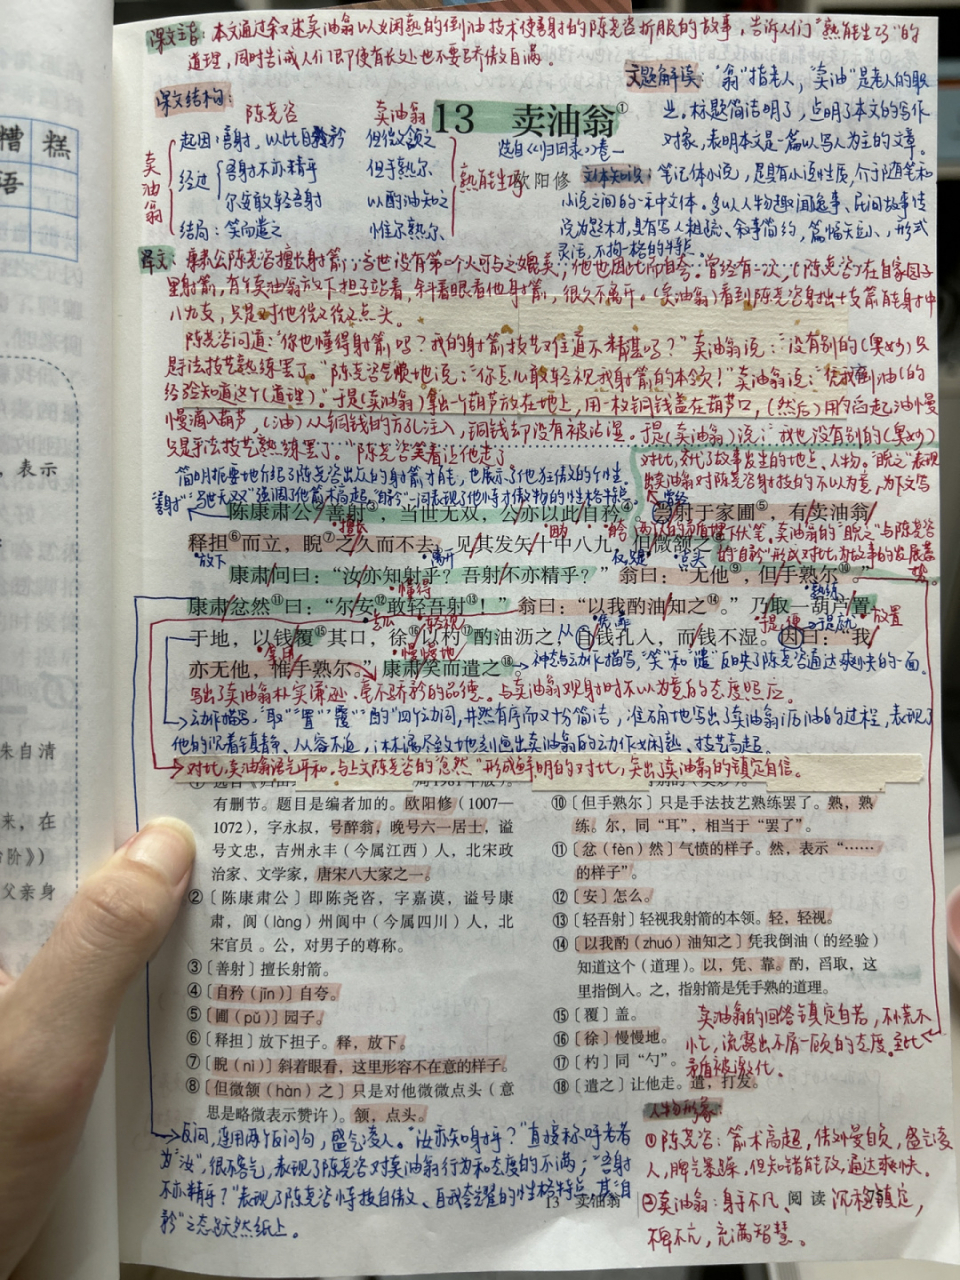 课文主旨：本文通过叙述卖油翁以娴熟的倒油技术使善射的陈尧咨折服的故事，告诉人们“熟能生巧”的
道理，同时告诫人们即使有长处也不要骄傲自满。
课文结构：
陈尧咨 卖油翁
起因：善射，以此自矜 但微颔之
经过 吾射不亦精乎 但手熟尔
尔安敢轻吾射 以酌油知之
结局：笑而遣之 惟手熟尔
卖油翁
熟能生巧
13 卖油翁①
选自《归田录》卷一
欧阳修
文题解读：“翁”指老人，“卖油”是老人的职
业。标题简洁明了，点明了本文的写作
对象，表明本文是一篇以写人为主的文章。
文体知识：笔记体小说，是具有小说性质，介于随笔和
小说之间的一种文体。多以人物趣闻逸事、民间故事传
说为题材，具有写人粗疏、叙事简约，篇幅短小、形式
灵活，不拘一格的特点。
译文：康肃公陈尧咨擅长射箭，当世没有第二个人可与之媲美，他也因此而自夸。曾经有一次，（陈尧咨）在自家园子
里射箭，有个卖油翁放下担子站着，斜着眼看他射箭，很久不离开。（卖油翁）看到陈尧咨射出十支箭能射中
八九支，只是对他微微点头。
陈尧咨问道：“你也懂得射箭吗？我的射箭技艺难道不精湛吗？”卖油翁说：“没有别的（奥妙）只
是手法技艺熟练罢了。”陈尧咨气愤地说：“你怎么敢轻视我射箭的本领！”卖油翁说：“凭我倒油（的
经验知道这个（道理）。于是（卖油翁）拿出一个葫芦放在地上，用一枚铜钱盖在葫芦口，（然后）用勺舀起油慢
慢滴入葫芦，（油）从铜钱的方孔注入，铜钱却没有被沾湿。于是（卖油翁）说：“我也没有别的（奥妙）
只是手法技艺熟练罢了。”陈尧咨笑着让他走了
简明扼要地介绍了陈尧咨出众的射箭才能，也展示了他狂傲的个性。
对比，交代了故事发生的地点、人物。“睨之”表现
出卖油翁对陈尧咨射技的不以为意，为下文写
陈康肃公②善射③，当世无双，公亦以此自矜④。尝射于家圃⑤，有卖油翁
擅长
曾经
释担⑥而立，睨⑦之久而不去。见其发矢十中八九，但微颔之⑧。
放下
离开
点头
的“自矜”形成对比，为故事的发展蓄
势。
康肃问曰：“汝亦知射乎？吾射不亦精乎？”翁曰：“无他⑨，但手熟尔⑩。”
懂得
熟练
康肃忿然⑪曰：“尔安⑫敢轻吾射⑬！”翁曰：“以我酌油知之⑭。”乃取一葫芦置
怎么
轻视
凭、靠
于是、就
放置
于地，以钱覆⑮其口，徐⑯以杓⑰酌油沥之，自钱孔入，而钱不湿。因曰：“我
慢慢地
从
亦无他，惟手熟尔。”康肃笑而遣之⑱。
神态与动作描写，“笑”和“遣”反映了陈尧咨通达爽快的一面。
写出了卖油翁朴实谦逊、毫不骄矜的品德。与卖油翁观射时不以为意的态度照应。
动作描写，“取”“置”“覆”“酌”四个动词，井然有序而又十分简洁，准确地写出了卖油翁沥油的过程，表现了
他的沉着镇静、从容不迫，淋漓尽致地刻画出卖油翁的动作娴熟、技艺高超。
对比，卖油翁语气平和，与上文陈尧咨的“忿然”形成鲜明的对比，突出了卖油翁的镇定自信。
有删节。题目是编者加的。欧阳修（1007—
1072），字永叔，号醉翁，晚号六一居士，谥
号文忠，吉州永丰（今属江西）人，北宋政
治家、文学家，唐宋八大家之一。
②〔陈康肃公〕即陈尧咨，字嘉谟，谥号康
肃，阆（làng）州阆中（今属四川）人，北
宋官员。公，对男子的尊称。
③〔善射〕擅长射箭。
④〔自矜（jīn）〕自夸。
⑤〔圃（pǔ）〕园子。
⑥〔释担〕放下担子。释，放下。
⑦〔睨（nì）〕斜着眼看，这里形容不在意的样子。
⑧〔但微颔（hàn）之〕只是对他微微点头（意
思是略微表示赞许）。颔，点头。
⑩〔但手熟尔〕只是手法技艺熟练罢了。熟，熟
练。尔，同“耳”，相当于“罢了”。
⑪〔忿（fèn）然〕气愤的样子。然，表示“……
的样子”。
⑫〔安〕怎么。
⑬〔轻吾射〕轻视我射箭的本领。轻，轻视。
⑭〔以我酌（zhuó）油知之〕凭我倒油（的经验）
知道这个（道理）。以，凭、靠。酌，舀取，这
里指倒人。之，指射箭是凭手熟的道理。
⑮〔覆〕盖。
⑯〔徐〕慢慢地。
⑰〔杓〕同“勺”。
⑱〔遣之〕让他走。遣，打发。
卖油翁的回答镇定自若，不慌不
忙，流露出不屑一顾的态度。至此
矛盾被激化。
反问，连用两个反问句，盛气凌人。“汝亦知射乎？”直接称呼老者
为“汝”，很不客气，表现了陈尧咨对卖油翁行为和态度的不满；“吾射
不亦精乎？”表现了陈尧咨恃技自傲、自我夸耀的性格特点，其“自
矜”之态跃然纸上。
人物形象：
①陈尧咨：箭术高超，傲慢自负，盛气凌
人，脾气暴躁，但知错能改，通达爽快。
②卖油翁：身手不凡、沉稳镇定，
不卑不亢，充满智慧。
13 卖油翁
阅读
糟 糕
语
，表示
朱自清
来，在
台阶》）
父亲身